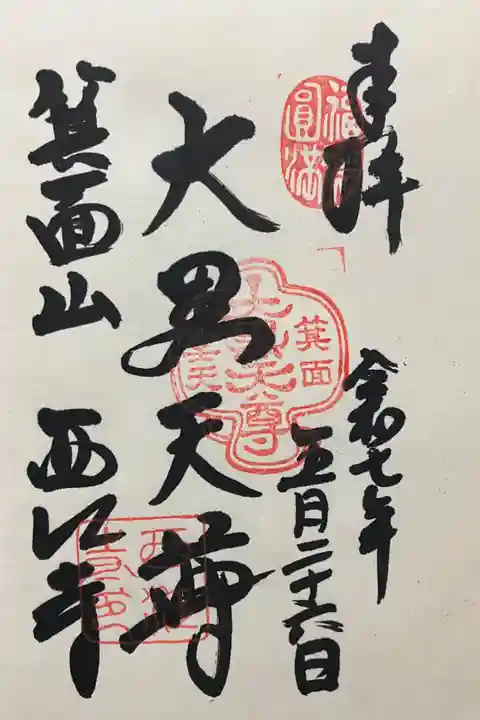 奉拝
令和七年
五月二十六日
大黒天尊
箕面山 西江寺
福 圓満
箕面
大黒天尊